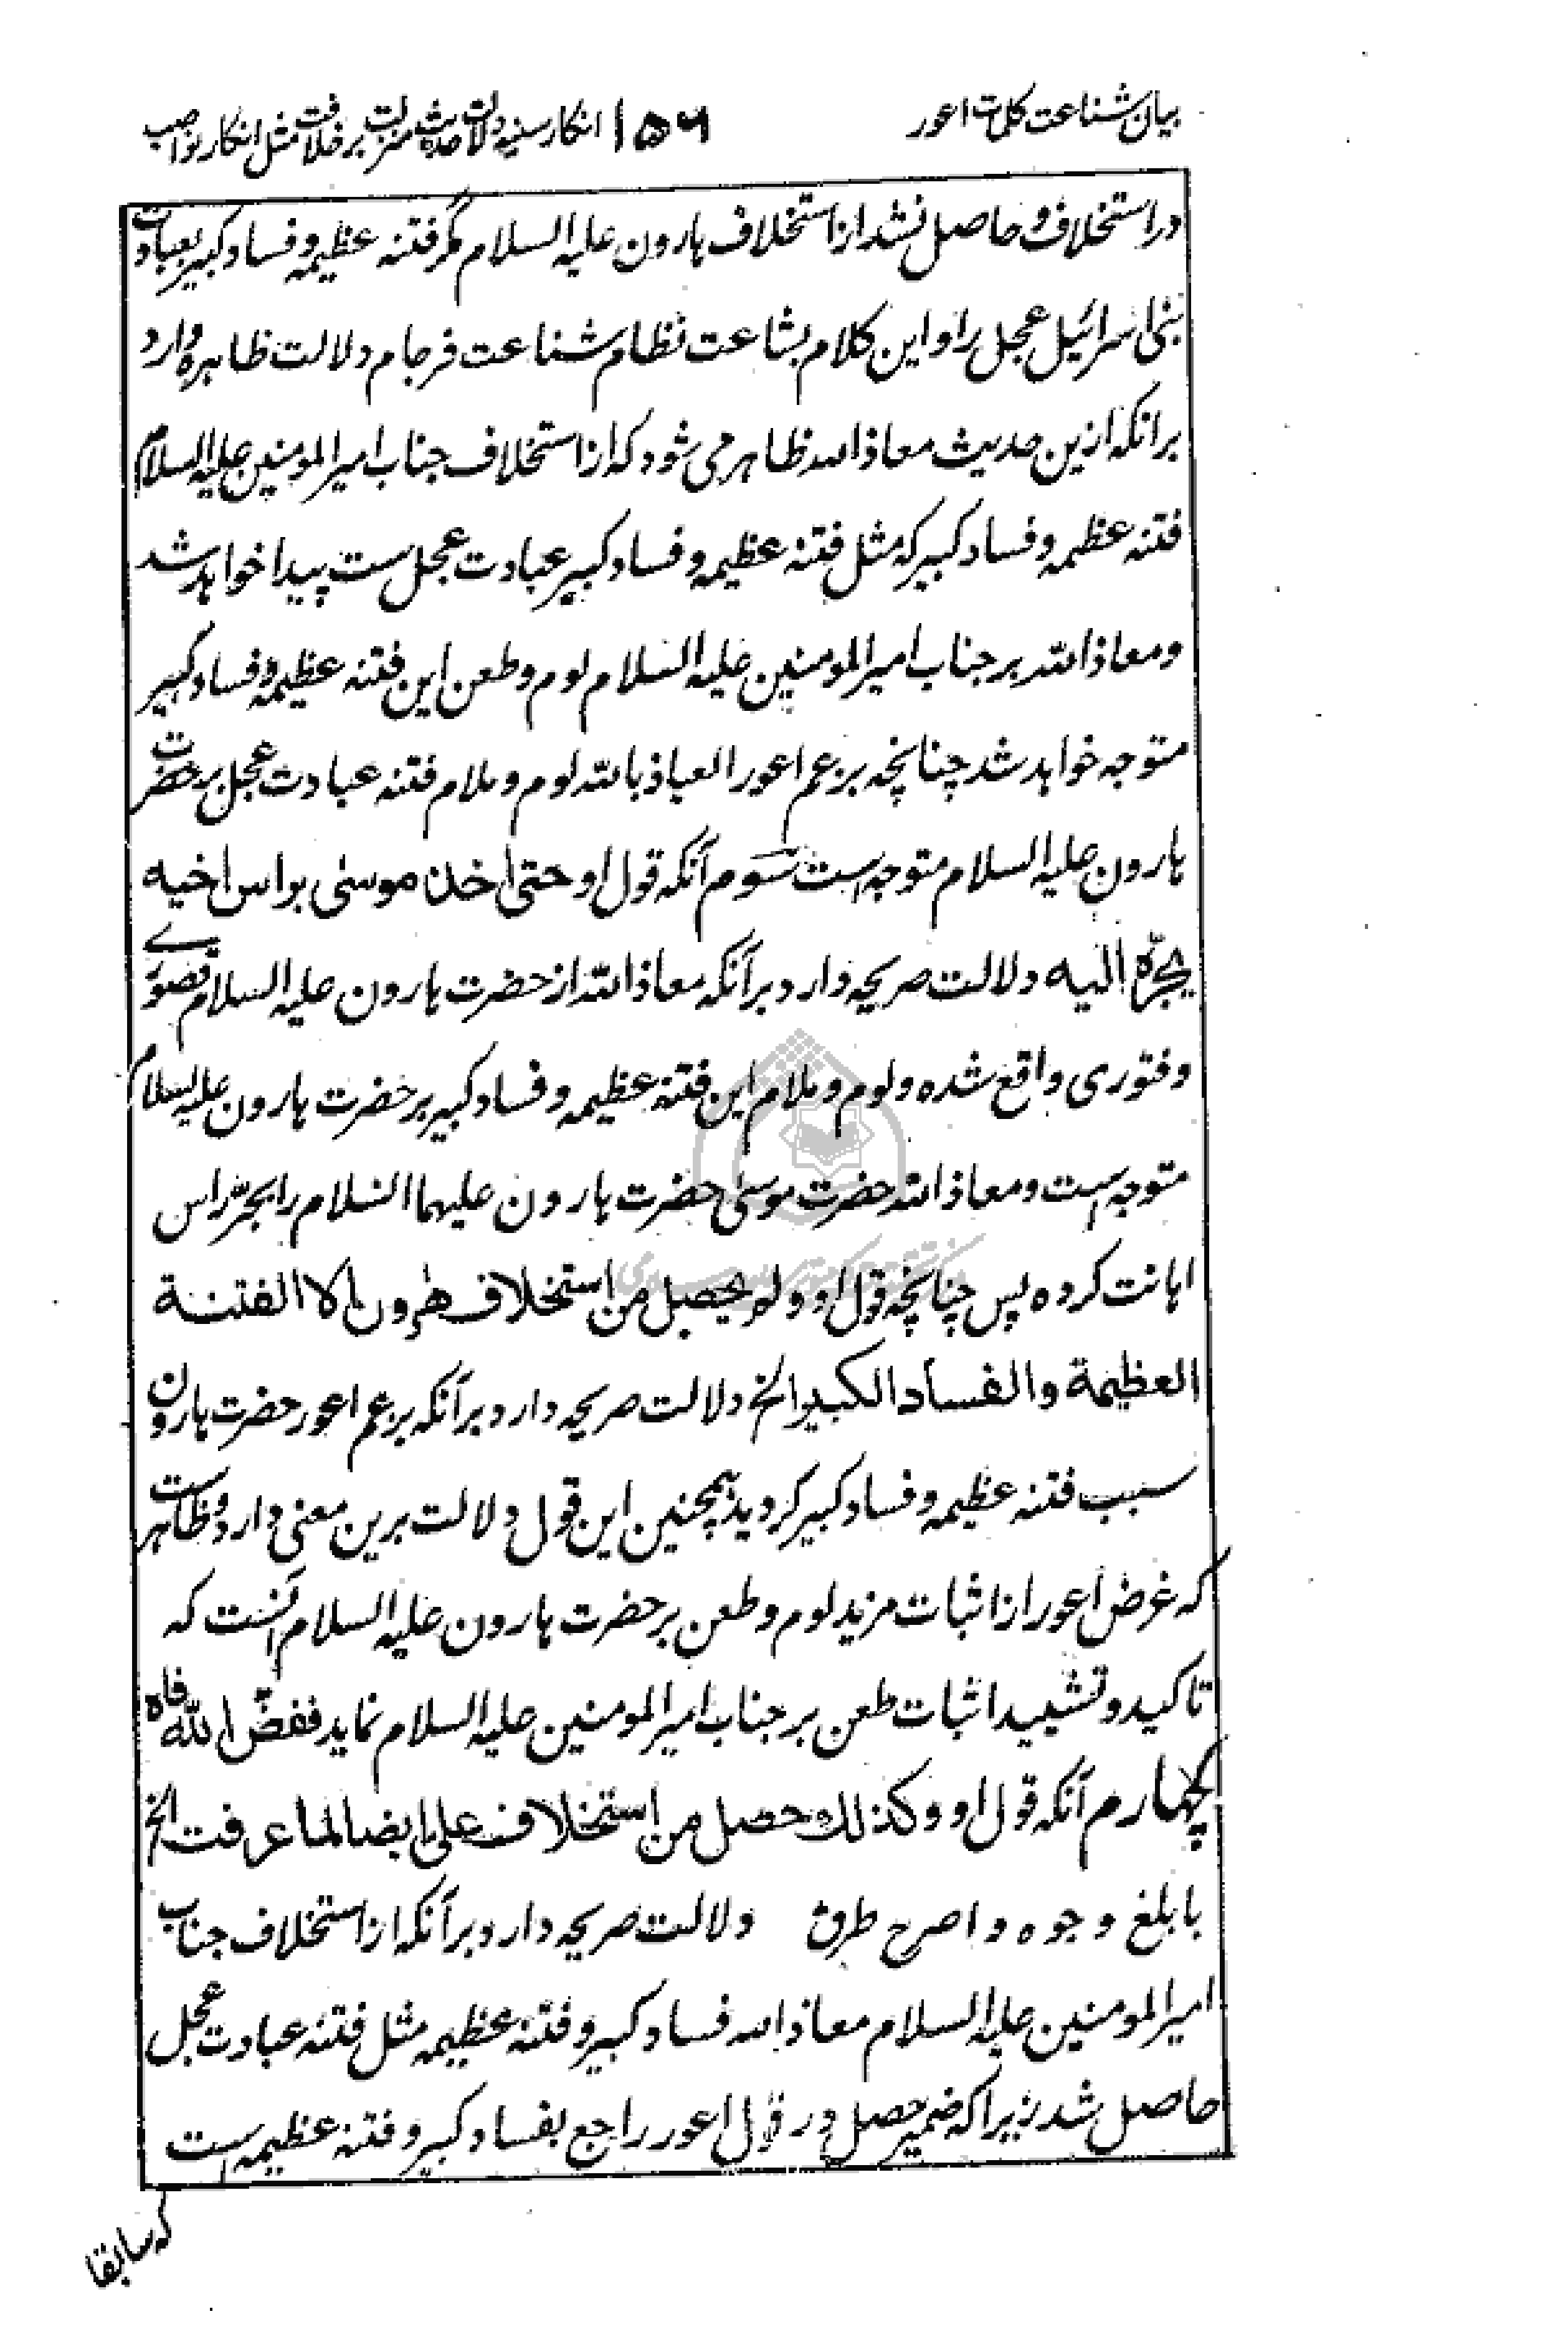 بیان شناعت کلمات اعور ۱۵۶ انکار سنیه دلالت حدیث منزلت بر خلافت مثل انکار نواصب
در استخلاف و حاصل نشد از استخلاف هارون علیه السلام مگر فتنه عظیمه و فساد کبیر بعبادت
بنی اسرائیل عجل را و این کلام بشاعت نظام شناعت فرجام دلالت ظاهره دارد
برانکه ازین حدیث معاذ الله ظاهر می شود که از استخلاف جناب امیرالمومنین علیه السلام
فتنه عظیمه و فساد کبیر که مثل فتنه عظیمه و فساد کبیر عبادت عجل ست پیدا خواهد شد
و معاذ الله بر جناب امیرالمومنین علیه السلام لوم و طعن این فتنه عظیمه و فساد کبیر
متوجه خواهد شد چنانچه بزعم اعور العیاذ بالله لوم و ملام فتنه عبادت عجل بر حضرت
هارون علیه السلام متوجه است سوم آنکه قول او حتی اخذ موسی براس اخیه
یجرّه الیه دلالت صریحه دارد برآنکه معاذ الله از حضرت هارون علیه السلام قصوری
و فتوری واقع شده و لوم و ملام این فتنه عظیمه و فساد کبیر بر حضرت هارون علیه السلام
متوجه است و معاذ الله حضرت موسی حضرت هارون علیهما السلام را بجرّ راس
اهانت کرده پس چنانچه قول او و لم یحصل من استخلاف هٰرون الا الفتنة
العظیمة والفساد الکبیر الخ دلالت صریحه دارد برآنکه بزعم اعور حضرت هارون
سبب فتنه عظیمه و فساد کبیر گردیده همچنین این قول دلالت برین معنی دارد و ظاهرست
که غرض اعور از اثبات مزید لوم و طعن بر حضرت هارون علیه السلام آنست که
تاکید و تشیید اثبات طعن بر جناب امیرالمومنین علیه السلام نماید ففضّ الله فاه
چهارم آنکه قول او و کذلك حصل من استخلاف علی ایضا لما عرفت الخ
بابلغ وجوه و اصرح طرق دلالت صریحه دارد برآنکه از استخلاف جناب
امیرالمومنین علیه السلام معاذ الله فساد کبیر و فتنه عظیمه مثل فتنه عبادت عجل
حاصل شد زیرا که ضمیر حصل در قول اعور راجع بفساد کبیر و فتنه عظیمه است
که سابقا